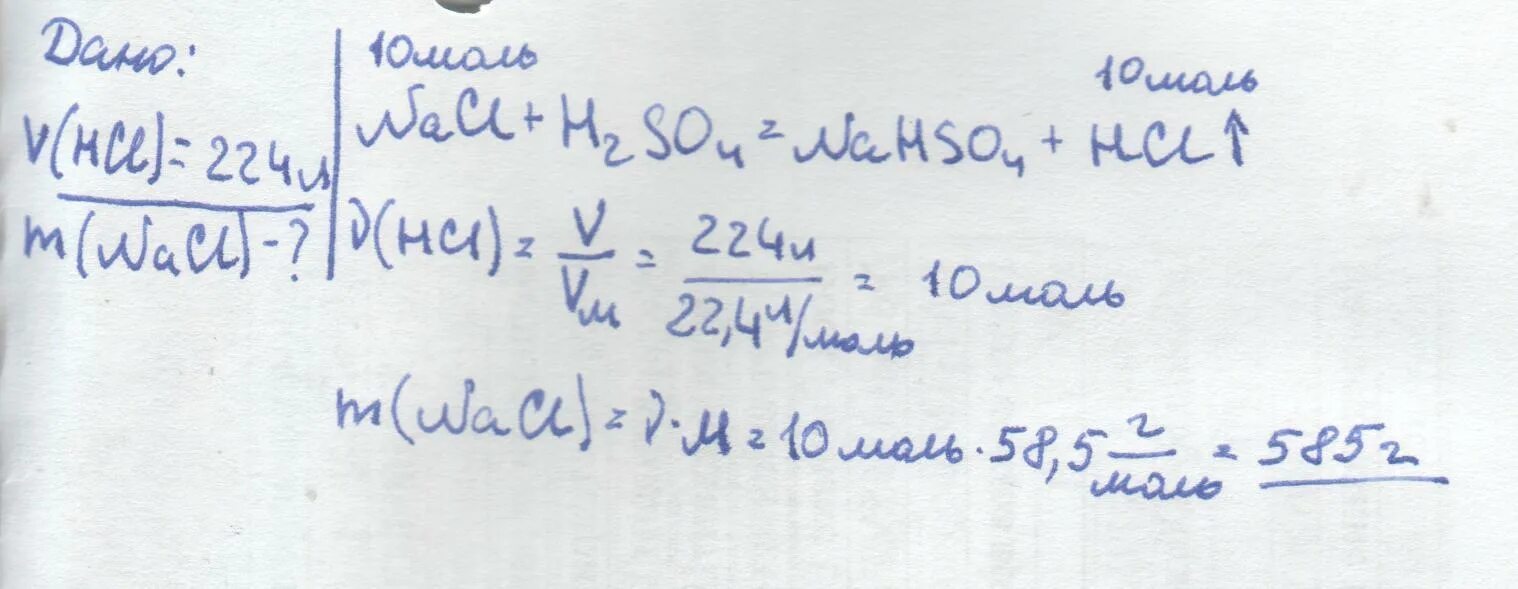 Дано:
V(HCl) = 224л
m(NaCl) - ?
10моль 10моль
NaCl + H₂SO₄ = NaHSO₄ + HCl↑
ν(HCl) = V/Vм = 224л/22,4л/моль = 10моль
m(NaCl) = ν·M = 10моль·58,5 г/моль = 585г